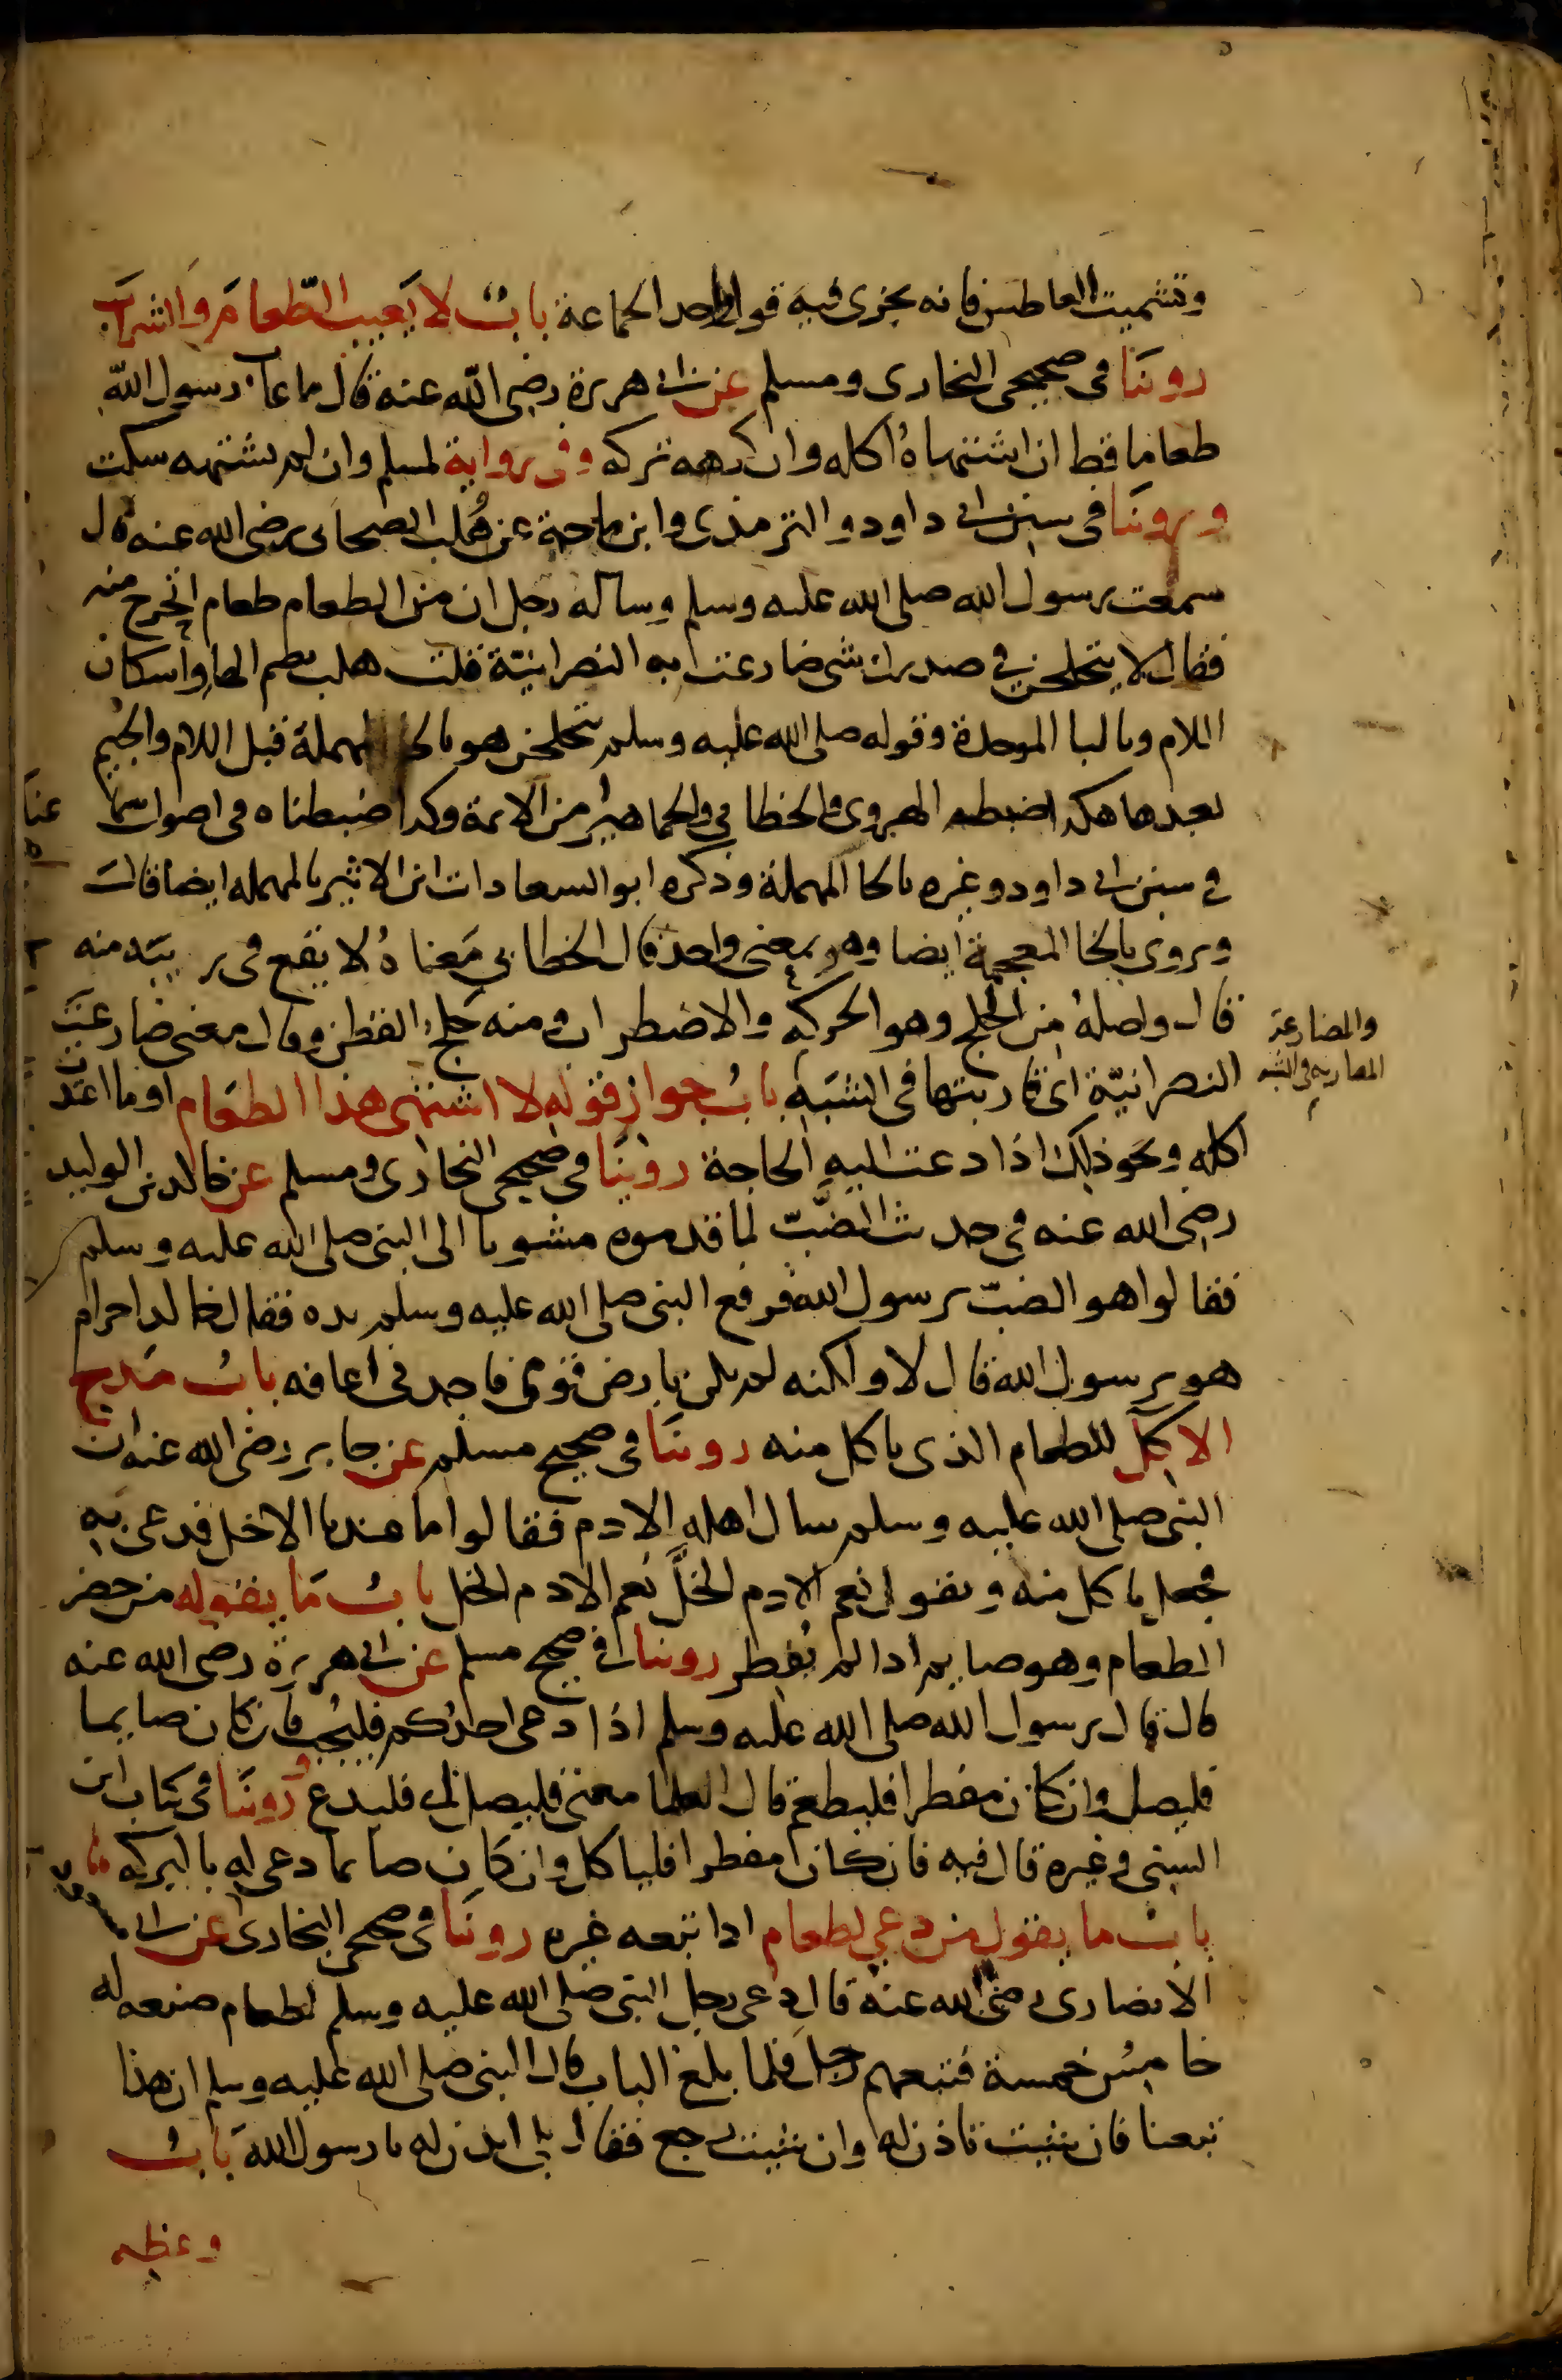 وتشميت العاطس فانه يجزى فيه قول واحد الجماعة باب لا يعيب الطعام والشراب
روينا فى صحيحى البخارى ومسلم عن ابى هريرة رضى الله عنه قال ما عاب رسول الله
طعاما قط ان اشتهاه اكله وان كرهه تركه وفى رواية لمسلم وان لم يشتهه سكت
وروينا فى سنن ابى داود والترمذى وابن ماجة عن هُلب الصحابى رضى الله عنه قال
سمعت رسول الله صلى الله عليه وسلم وساله رجل ان من الطعام طعام اتحرج منه
فقال لا يتحلجن في صدرك شى ضارعت به النصرانيّة قلت هلب بضم الها واسكان
اللام وبالبا الموحدة وقوله صلى الله عليه وسلم يتحلجن هو بالحا المهملة قبل اللام والجيم
بعدها هكذا ضبطه الهروى والخطابي والجماهير من الائمة وكذا ضبطناه فى اصول سما
عنا
في سنن ابى داود وغيره بالحا المهملة وذكره ابو السعادات ابن الاثير بالمهمله ايضا قال
ويروى بالخا المعجمة ايضا وهو بمعنى واحد قال الخطابي مَعناهُ لا يقع فى ريبَة منه
قال واصلهُ من الحلج وهو الحركه والاضطراب ومنه حَلج القطن وقال معنى ضارعت
النصرانيّة اى قاربتها فى الشبَه باب جواز قوله لا اشتهى هذا الطعَام او ما اعتدت
والمضارعة
المقاربه في الشبه
اكله ونحو ذلك اذا دعت اليه الحاجة روينا فى صحيحى البخارى ومسلم عن خالد بن الوليد
رضى الله عنه في حديث الضَّبّ لما قدموه مشويا الى النبى صلى الله عليه وسلم
فقالوا هو الضبّ يرسول الله فرفع النبى صلى الله عليه وسلم يده فقال خالد احرام
هو يرسول الله قال لا ولكنه لم يكن بارض قومى فاجدنى اعافه باب مَدح
الاكل للطعام الذى ياكل منه روينا فى صحيح مسلم عن جابر رضى الله عنه ان
النبى صلى الله عليه وسلم سال اهله الادم فقالوا ما عندنا الا خل فدعى به
فجعل ياكل منه ويقول نعم الادم الخلّ نعم الادم الخل باب مَا يقوله من حضر
الطعام وهو صايم اذا لم يُفطر روينا فى صحيح مسلم عن ابى هريرة رضى الله عنه
قال قال رسول الله صلى الله عليه وسلم اذا دعى احدُكم فليُجب فان كان صايما
فليصل وان كان مفطرا فليطعم قال العلما معنى فليصل اى فليدع وروينا فى كتاب ابن
السنى وغيره قال فيه فان كان مفطرا فلياكل وان كان صايما دعى له بالبركه
باب ما يقول من دعى لطعام اذا تبعه غيره روينا فى صحيحى البخارى عن ابى مسعود
الانصارى رضى الله عنه قال دعى رجل النبى صلى الله عليه وسلم لطعام صنعه له
خامِسُ خمسة فتبعهم رجل فلما بلغ الباب قال النبى صلى الله عليه وسلم ان هذا
تبعنا فان شئت تاذن له وان شئت رجع فقال بلى ايذن له يا رسول الله باب
وعظه